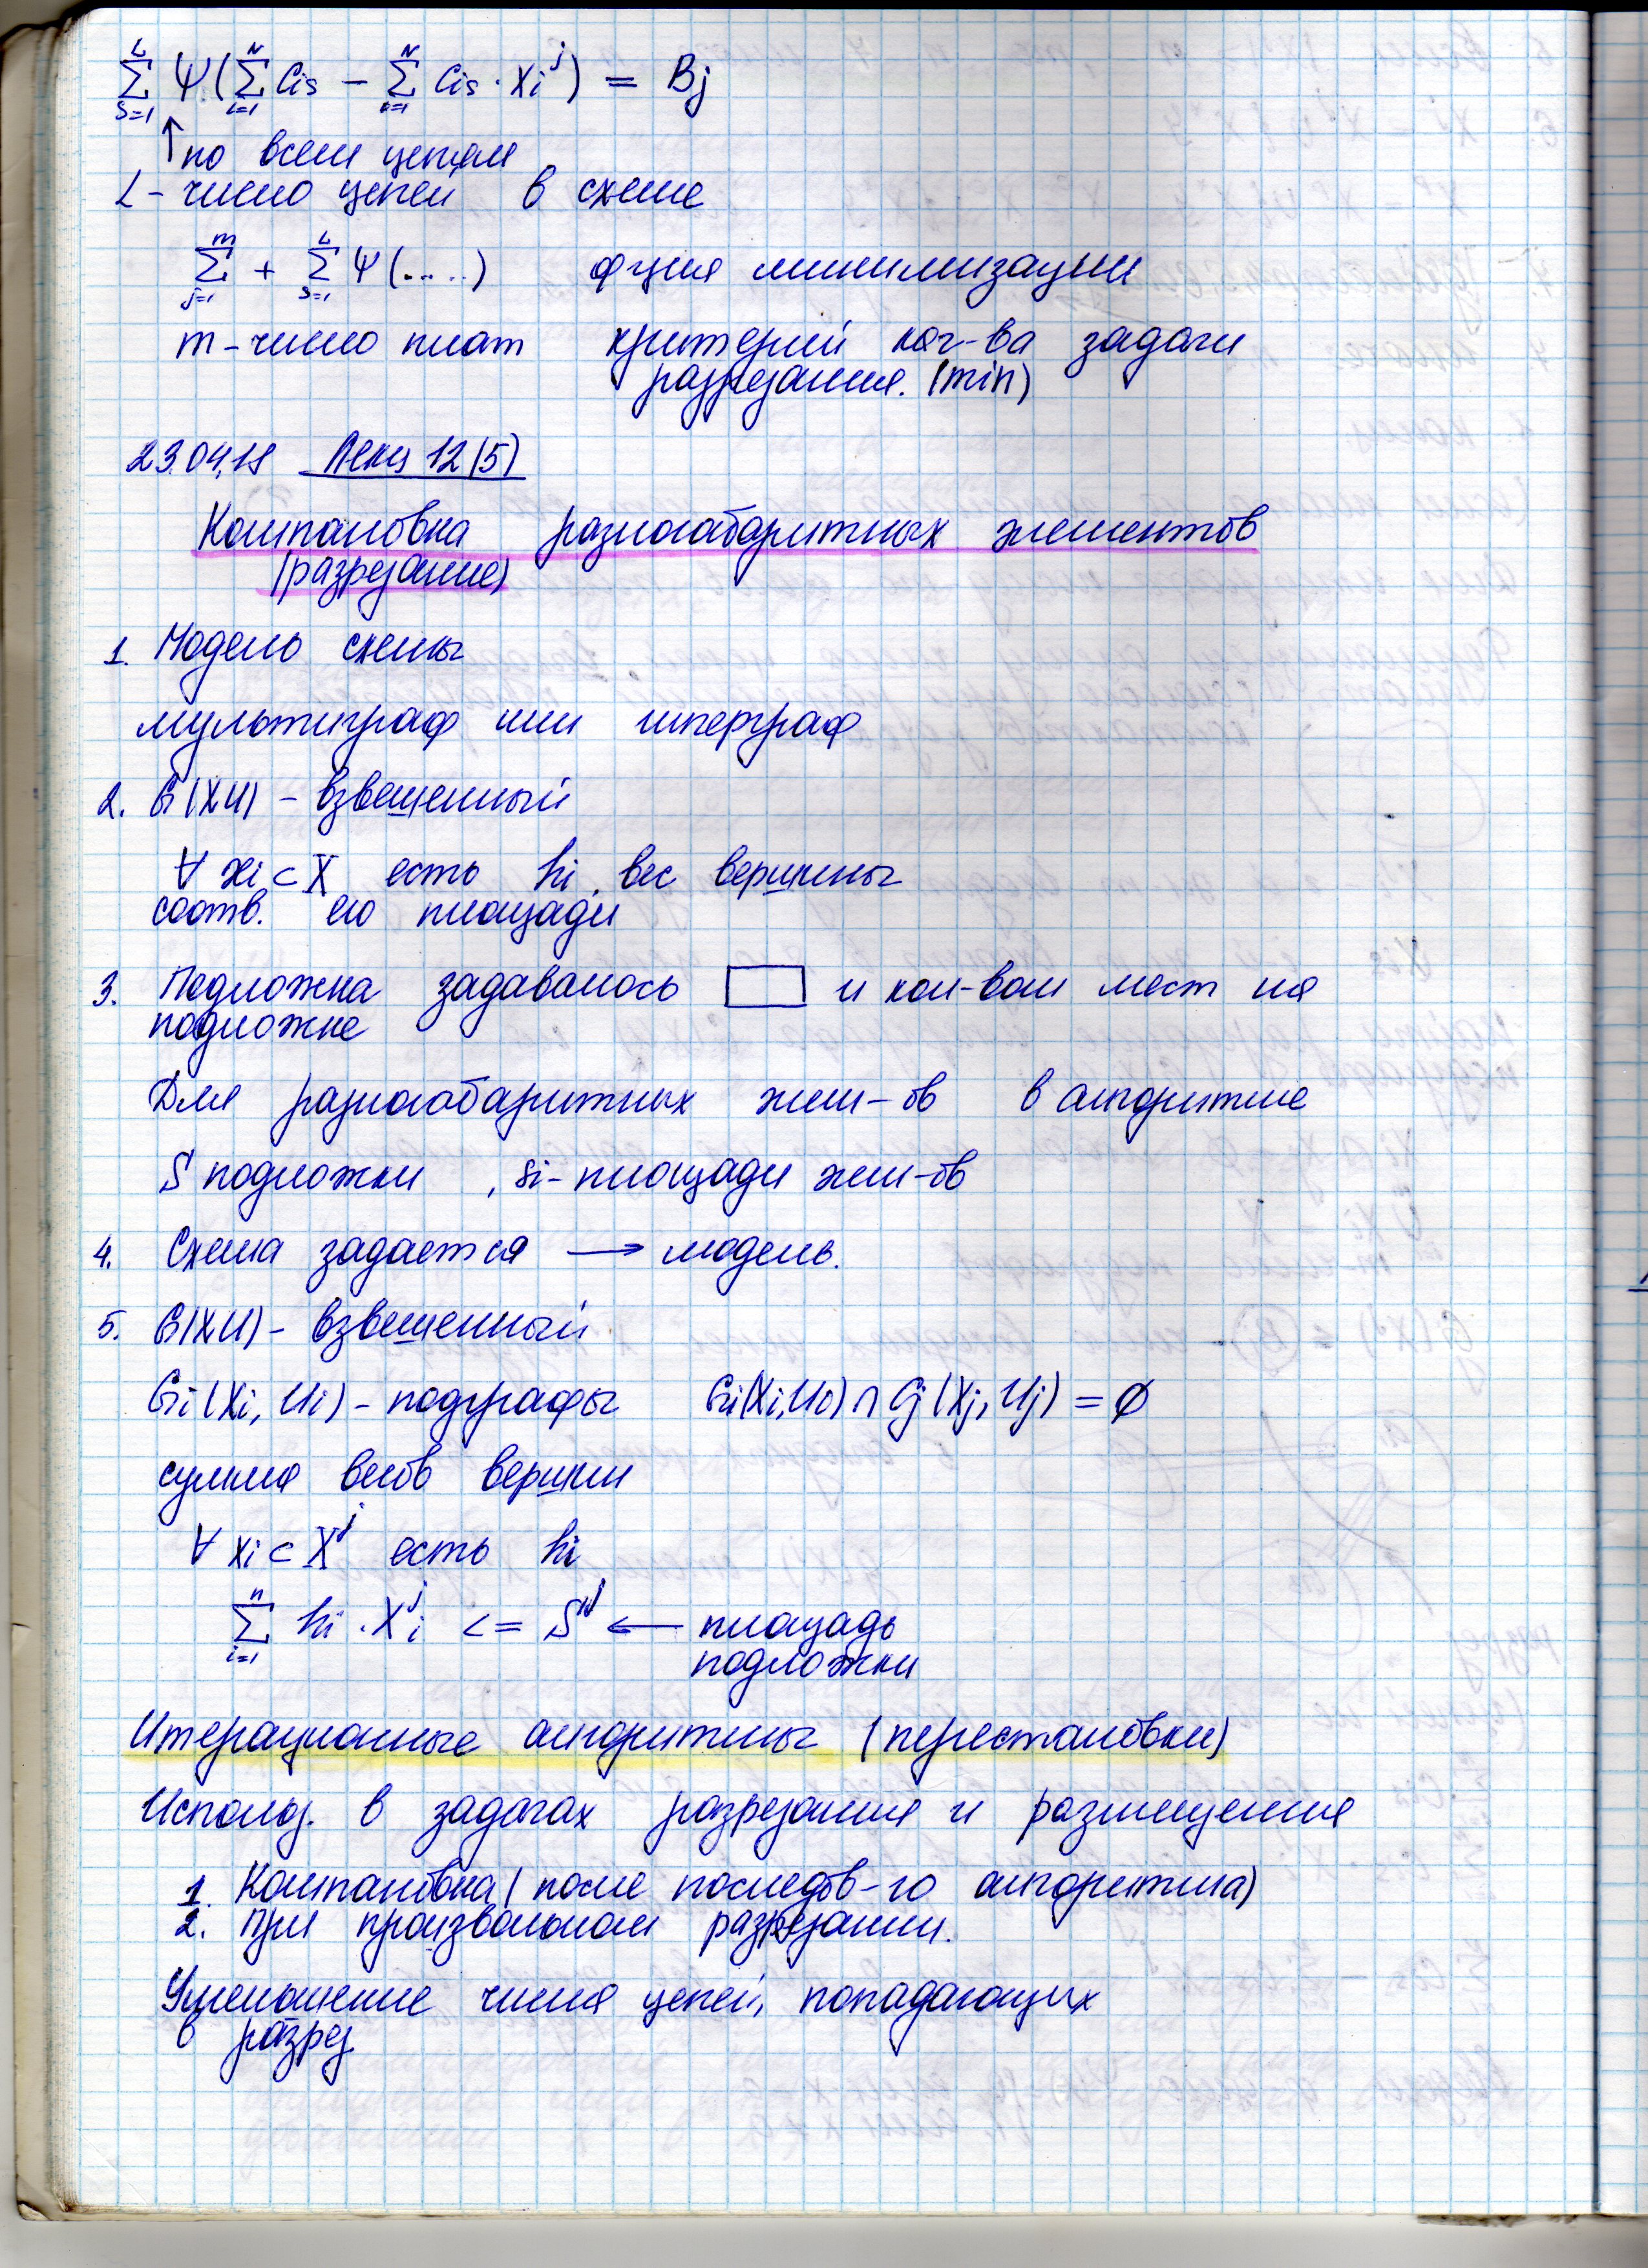 L∑S=1 Ψ(N∑i=1 Cis − N∑i=1 Cis · Xi^j) = Bj
↑ по всем цепям
L - число цепей в схеме
m∑j=1 + L∑S=1 Ψ(.....) ф-ция минимизации
m - число плат критерий кач-ва задачи
разрезания. (min)
23.04.18 Лекц 12(5)
Компановка разногабаритных элементов
(разрезание)
1. Модель схемы
мультиграф или гиперграф
2. G(XU) - взвешенный
∀ xi ⊂ X есть hi, вес вершины
соотв. его площади
3. Подложка задавалось ▭ и кол-вом мест на
подложке
Для разногабаритных элем-ов в алгоритме
S подложки , si - площади элем-ов
4. Схема задается → модель.
5. G(XU) - взвешенный
Gi(Xi, Ui) - подграфы Gi(Xi,Ui) ∩ Gj(Xj, Uj) = ∅
сумма весов вершин
∀ xi ⊂ X^j есть hi
n∑i=1 hi · X^j i <= S^j ← площадь
подложки
Итерационные алгоритмы (перестановки)
Использ. в задачах разрезания и размещения
1. Компановка (после последов-го алгоритма)
2. При произвольном разрезании.
Уменьшение числа цепей, попадающих
в разрез